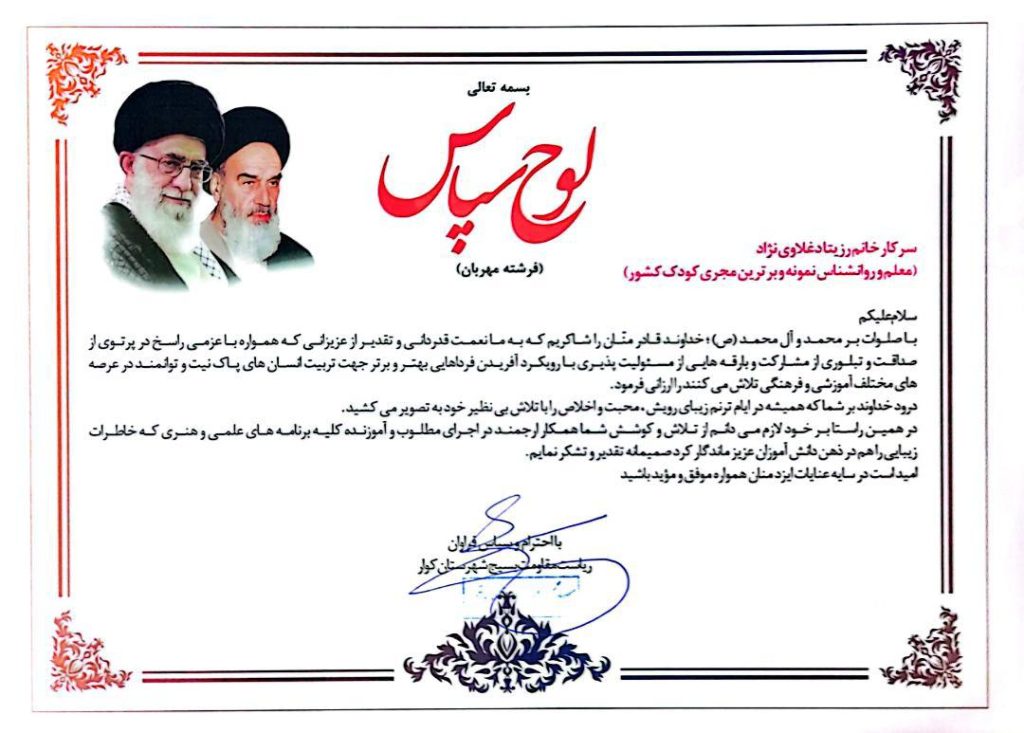 بسمه تعالی
لوح سپاس
(فرشته مهربان)
سرکار خانم رزیتا دغلاوی نژاد
(معلم و روانشناس نمونه و برترین مجری کودک کشور)
سلام علیکم
با صلوات بر محمد و آل محمد (ص)؛ خداوند قادر منّان را شاکریم که به ما نعمت قدردانی و تقدیر از عزیزانی که همواره با عزمی راسخ در پرتوی از
صداقت و تبلوری از مشارکت و بارقه هایی از مسئولیت پذیری با رویکرد آفریدن فرداهایی بهتر و برتر جهت تربیت انسان های پاک نیت و توانمند در عرصه
های مختلف آموزشی و فرهنگی تلاش می کنند را ارزانی فرمود.
درود خداوند بر شما که همیشه در ایام ترنم زیبای رویش، محبت و اخلاص را با تلاش بی نظیر خود به تصویر می کشید.
در همین راستا بر خود لازم می دانم از تلاش و کوشش شما همکار ارجمند در اجرای مطلوب و آموزنده کلیه برنامه های علمی و هنری که خاطرات
زیبایی را هم در ذهن دانش آموزان عزیز ماندگار کرد صمیمانه تقدیر و تشکر نمایم.
امید است در سایه عنایات ایزد منان همواره موفق و مؤید باشید
با احترام و سپاس فراوان
ریاست مقاومت بسیج شهرستان کوار